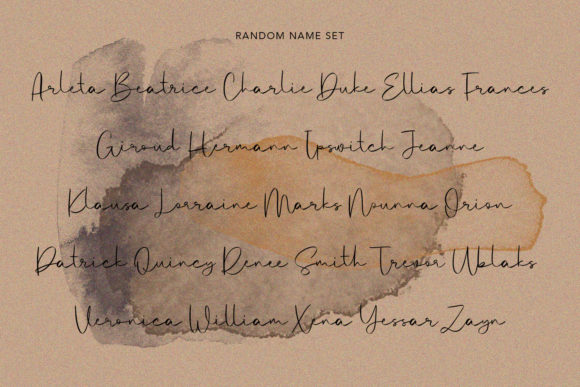 RANDOM NAME SET
Arleta Beatrice Charlie Duke Ellias Frances
Giroud Hermann Ipswitch Jeanne
Klausa Lorraine Marks Nounna Orion
Patrick Quincy Renee Smith Trevor Ublaks
Veronica William Xena Yessar Zayn